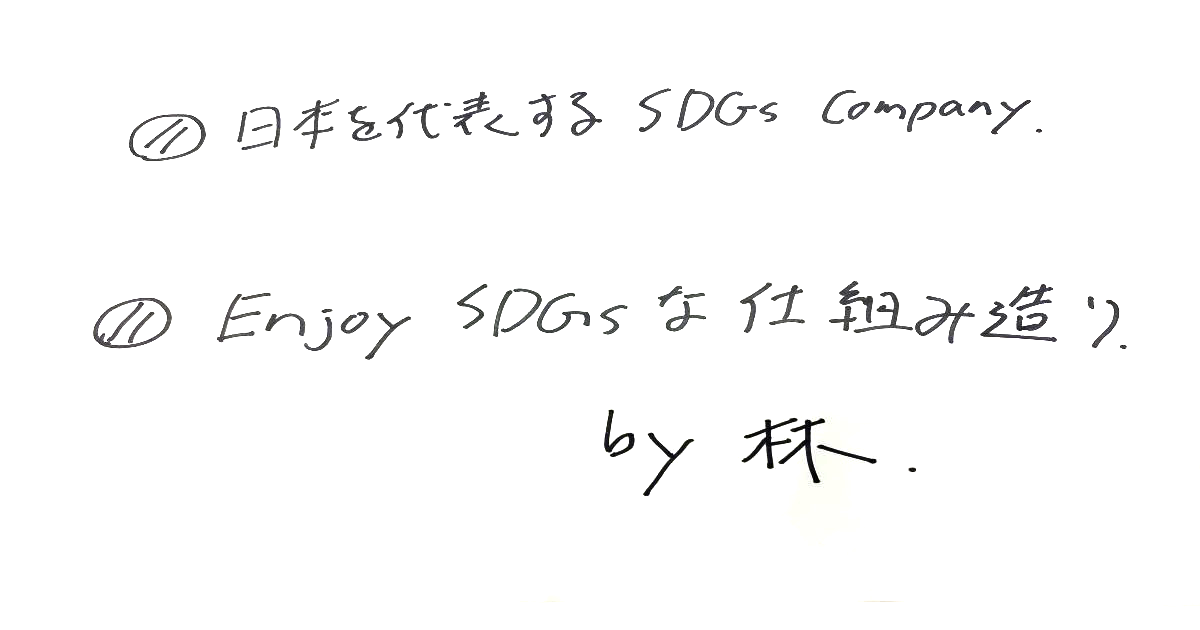 日本を代表する SDGs Company.
Enjoy SDGs な 仕組み造り.
by 林.